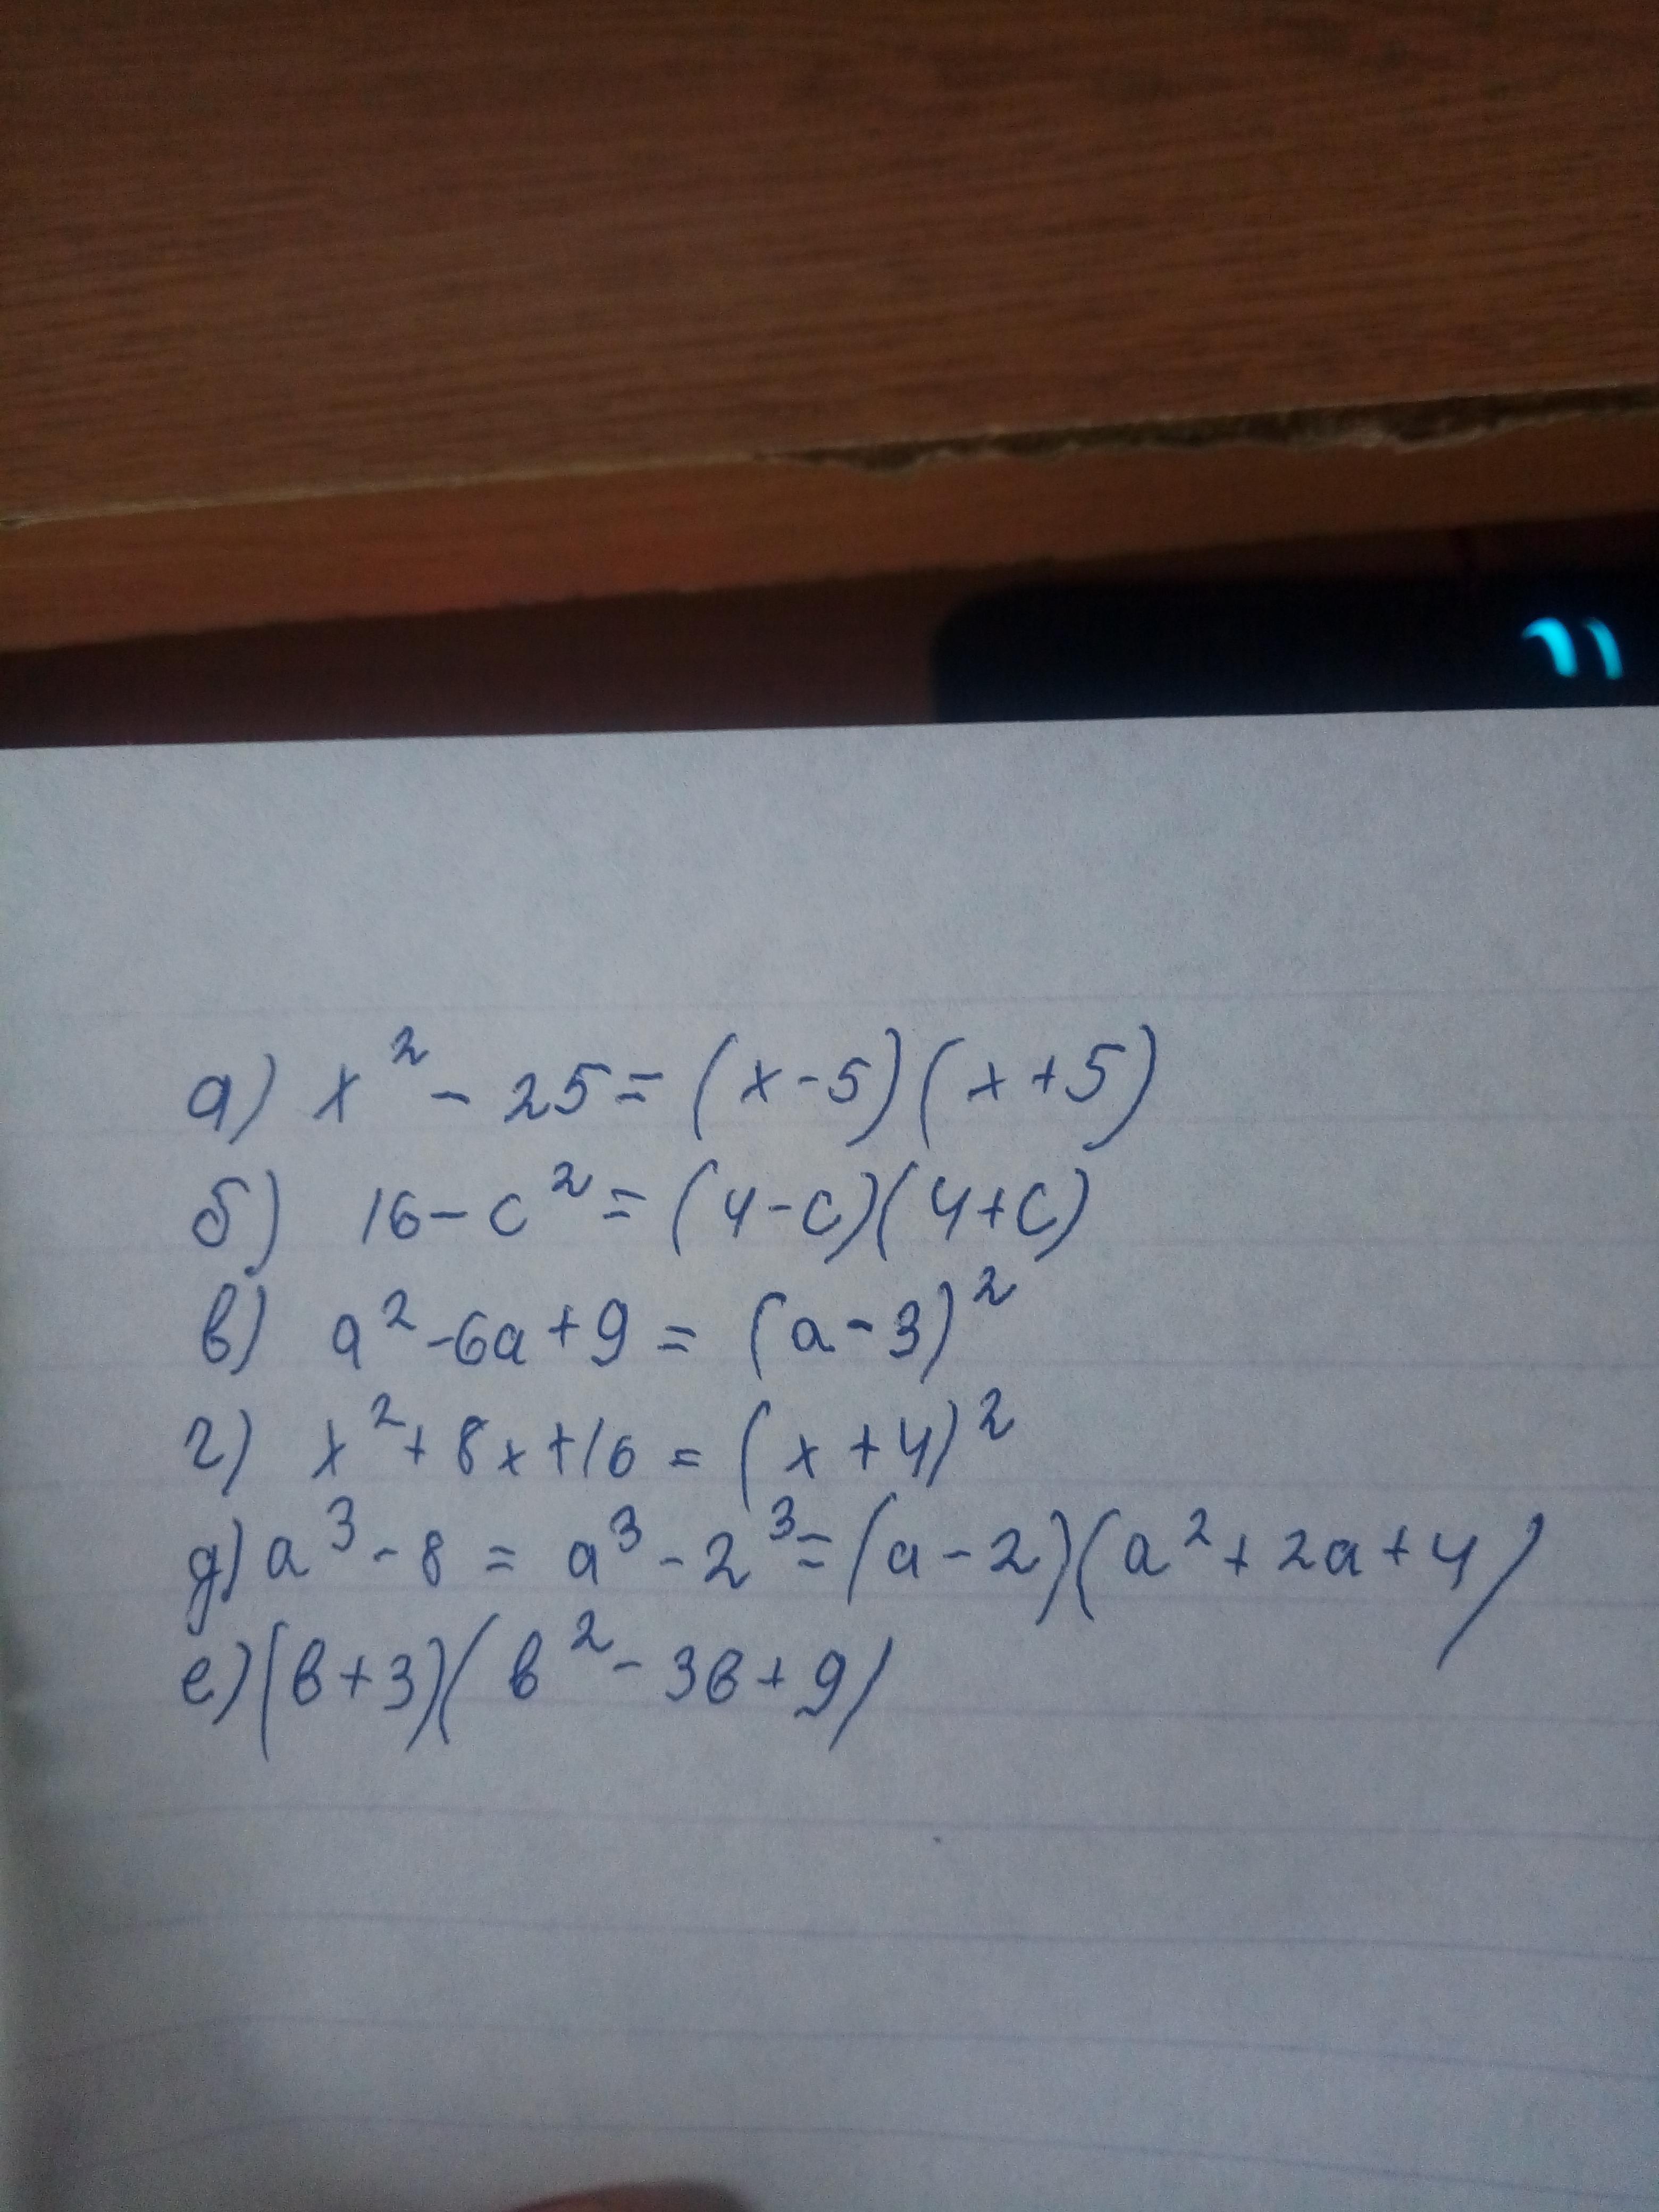 а) x² - 25 = (x - 5)(x + 5)
б) 16 - c² = (4 - c)(4 + c)
в) a² - 6a + 9 = (a - 3)²
г) x² + 8x + 16 = (x + 4)²
д) a³ - 8 = a³ - 2³ = (a - 2)(a² + 2a + 4)
е) (b + 3)(b² - 3b + 9)